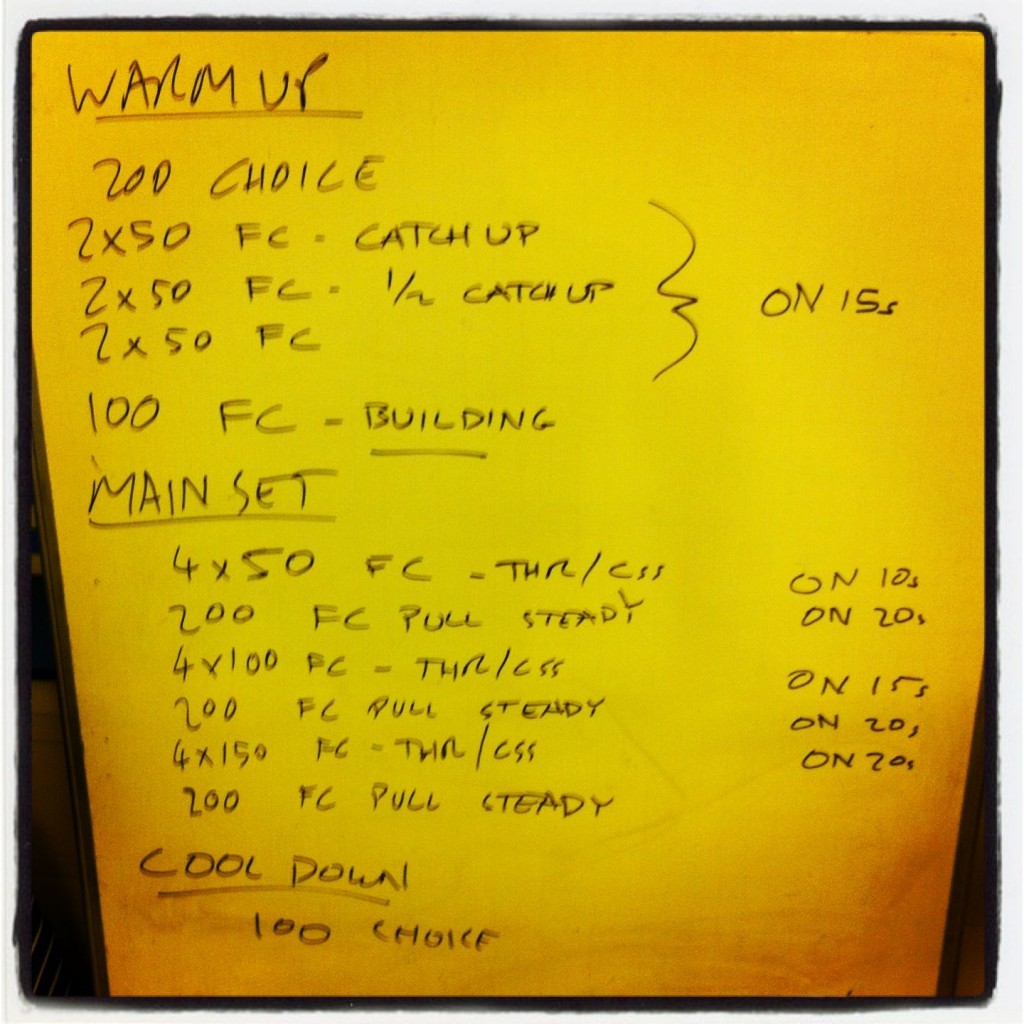 WARM UP
200 CHOICE
2x50 FC - CATCH UP
2x50 FC - 1/2 CATCH UP
2x50 FC
ON 15s
100 FC - BUILDING
MAIN SET
4x50 FC - THR/CSS ON 10s
200 FC PULL STEADY ON 20s
4x100 FC - THR/CSS ON 15s
200 FC PULL STEADY ON 20s
4x150 FC - THR/CSS ON 20s
200 FC PULL STEADY
COOL DOWN
100 CHOICE